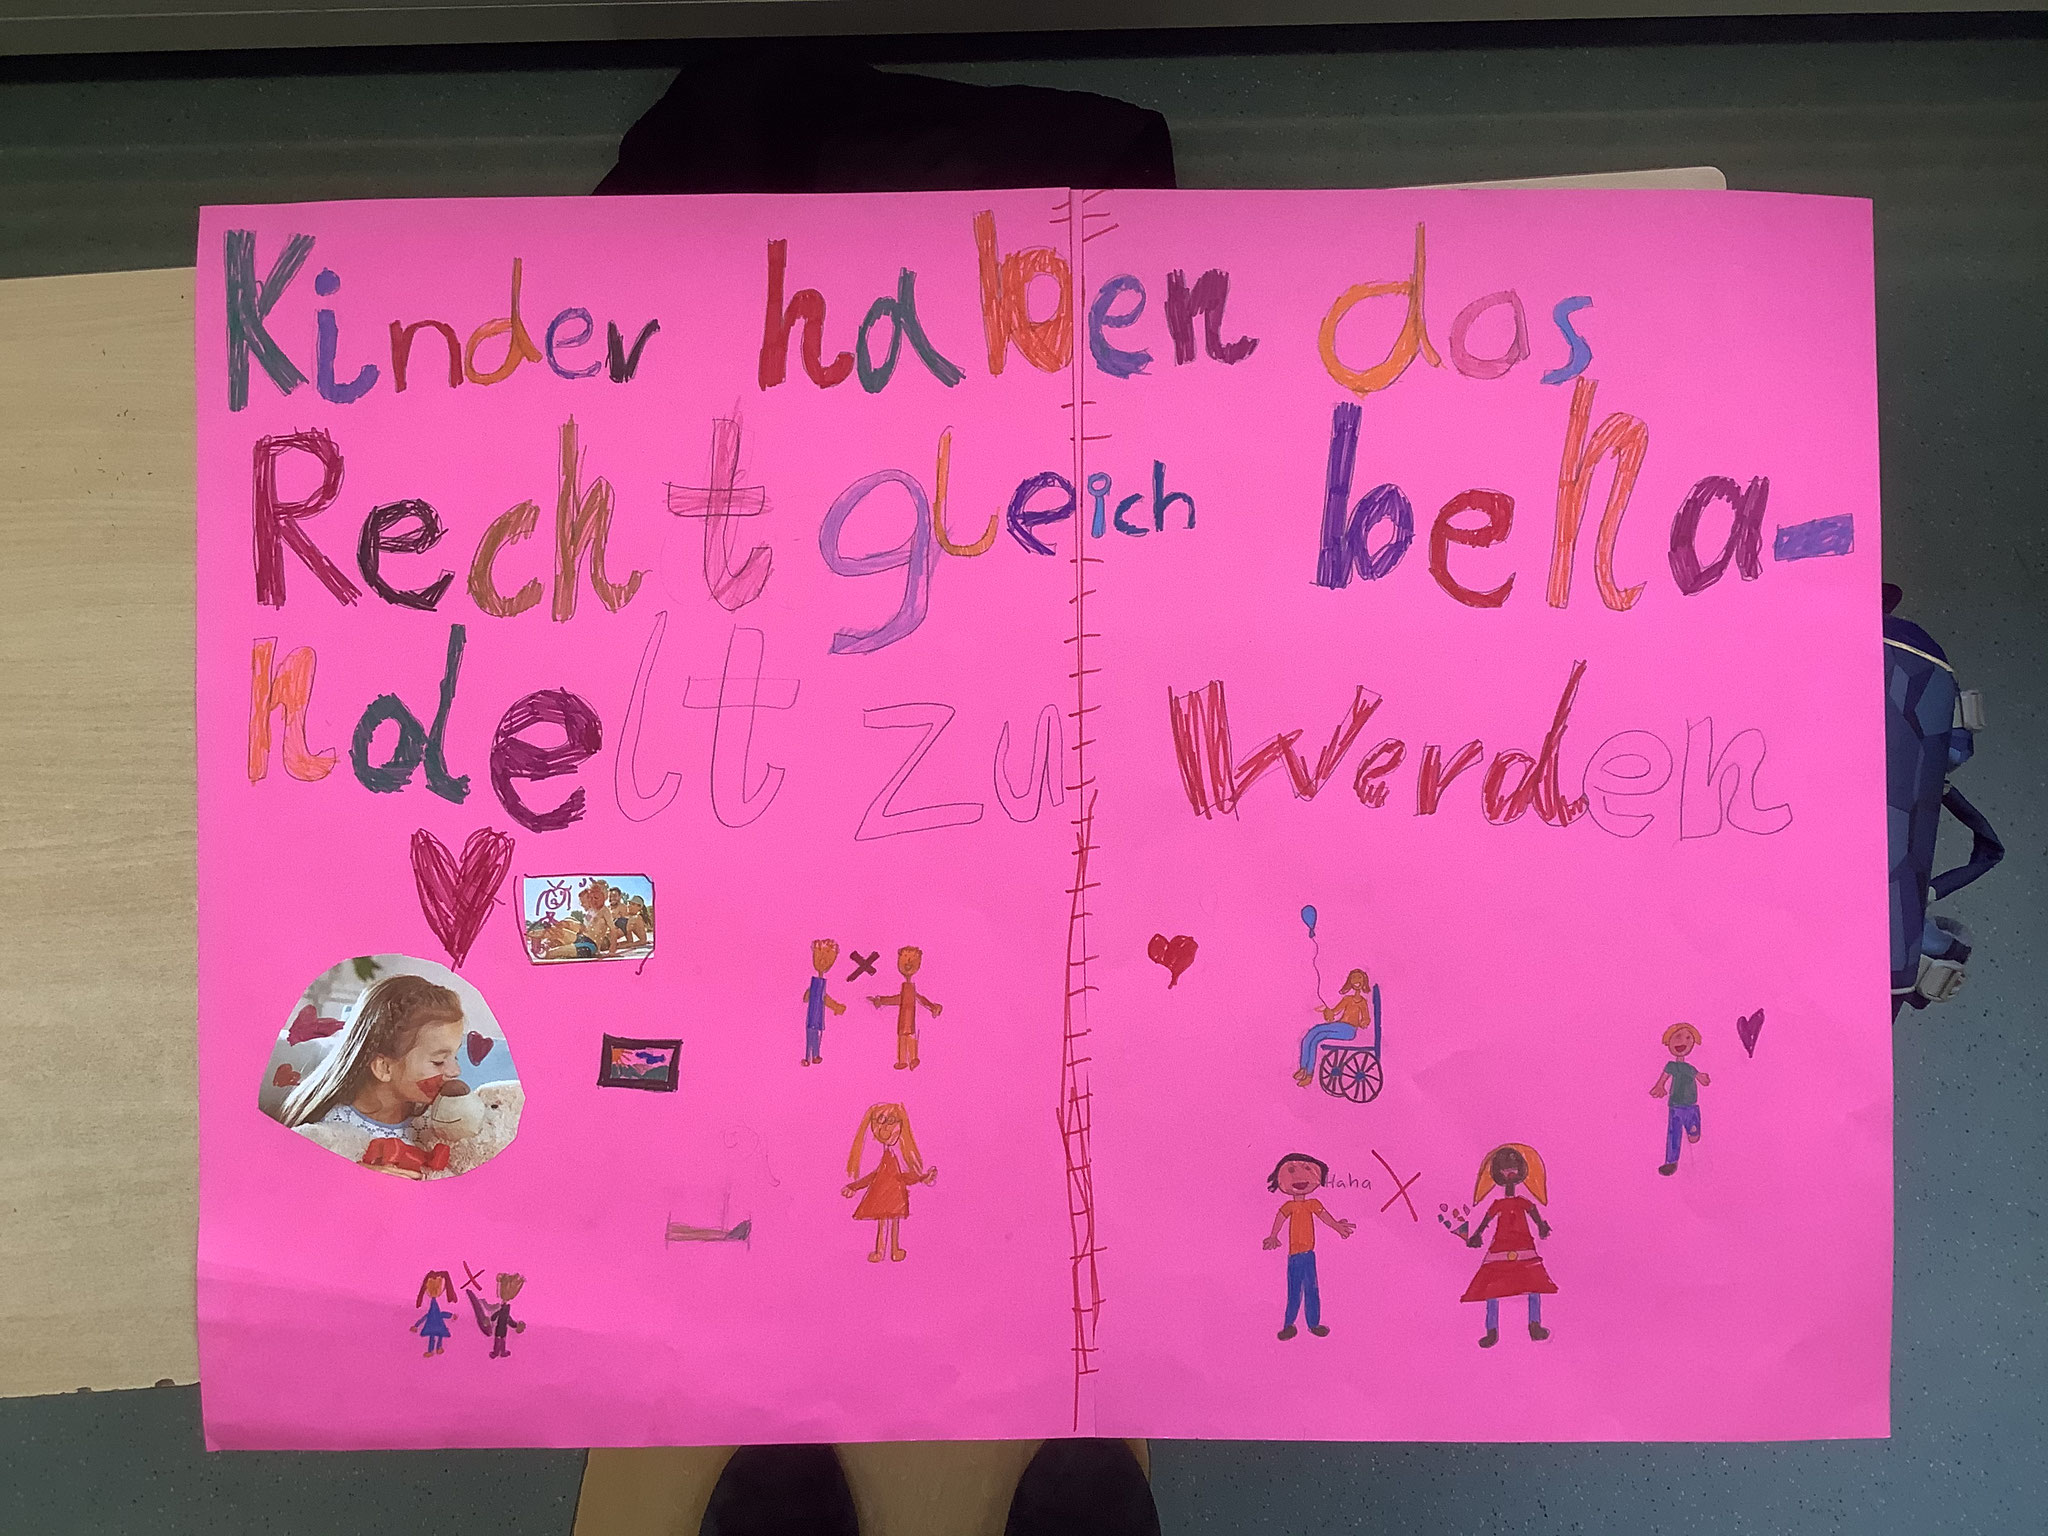 Kinder haben das
Recht gleich beha-
ndelt zu werden
Haha